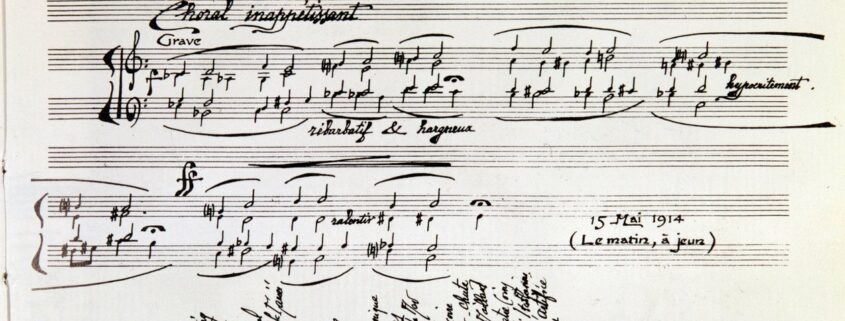 Choral inappétissant
Grave
hypocritement.
rébarbatif & hargneux
ff
ralentir
15 Mai 1914
(Le matin, à jeun)